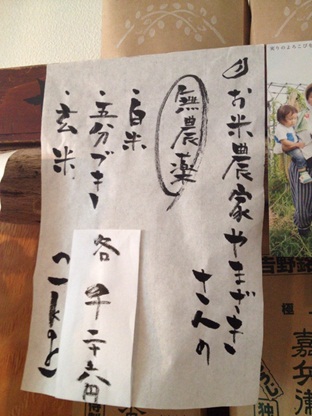 お米農家やまざき
さんの
無農薬
・白米
・五分づき
・玄米
各 千二十六円
(1kg
吉野
極
嘉兵衛